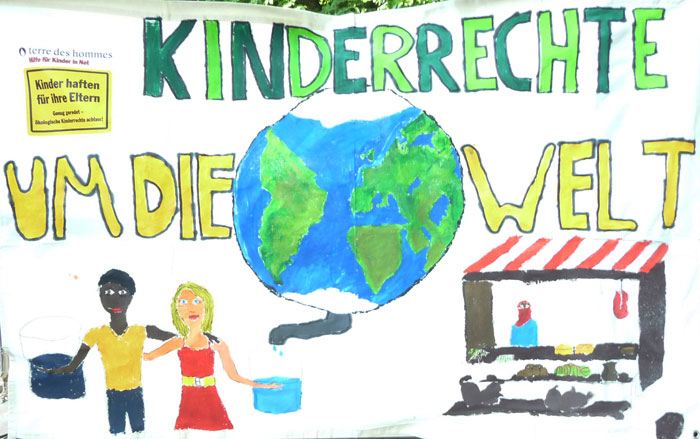 KINDERRECHTE
terre des hommes
Hilfe für Kinder in Not
Kinder haften
für ihre Eltern
Genug geredet –
ökologische Kinderrechte achten!
UM DIE WELT